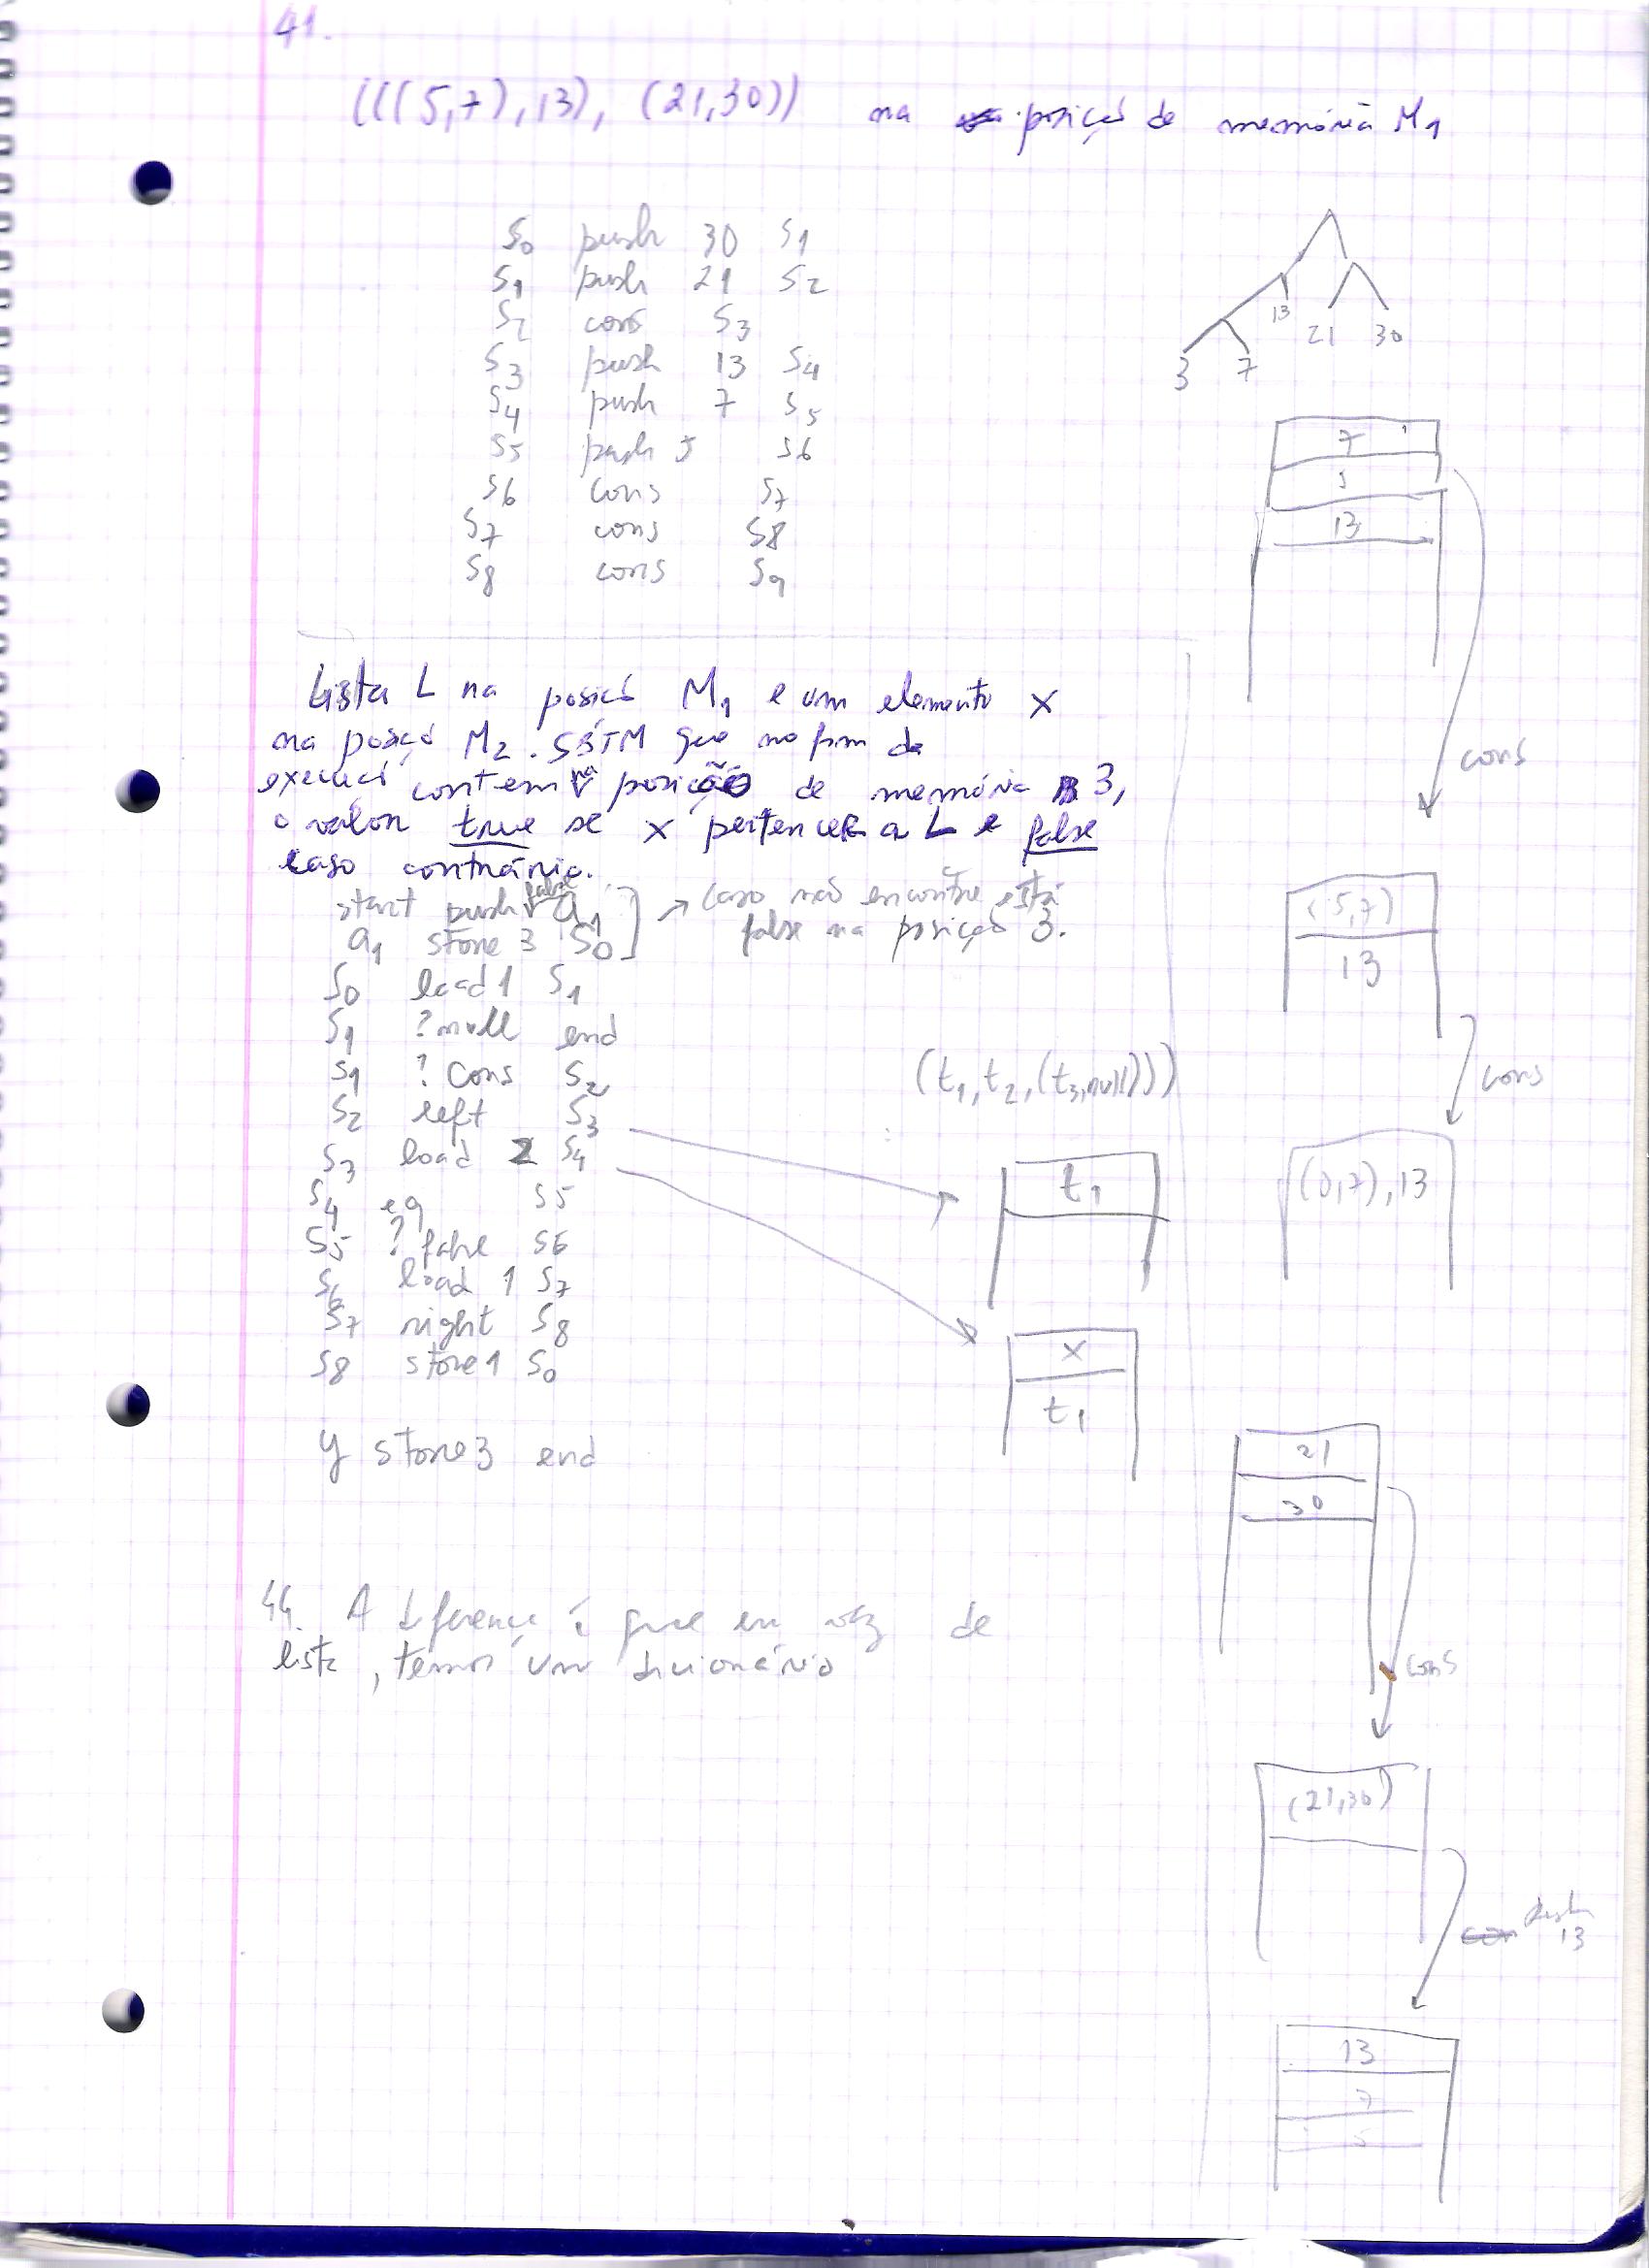 41.
(((5,7),13), (21,30)) na posiçõ de memória M1
S0 push 30 S1
S1 push 21 S2
S2 cons S3
S3 push 13 S4
S4 push 7 S5
S5 push 5 S6
S6 cons S7
S7 cons S8
S8 cons S9
13 21 30
3 7
7
5
13
cons
Lista L na posiçõ M1 e um elemento x
na posiçõ M2. SBTM que no fim da
execuçõ contem na posição de memória 3,
o valor true se x pertencer a L e false
caso contrário.
start push false a1
a1 store 3 S0
→ caso não encontre está
false na posição 3.
S0 load 1 S1
S1 ?null end
S1 ? cons S2
S2 left S3
S3 load 2 S4
S4 eq S5
S5 ? false S6
S6 load 1 S7
S7 right S8
S8 store 1 S0
y store 3 end
(5,7)
13
cons
(t1,t2,(t3,null)))
t1
(5,7),13
x
t1
21
30
cons
44. A diferença é que em vez de
lista, temos um dicionário
(21,30)
push
13
13
7
5